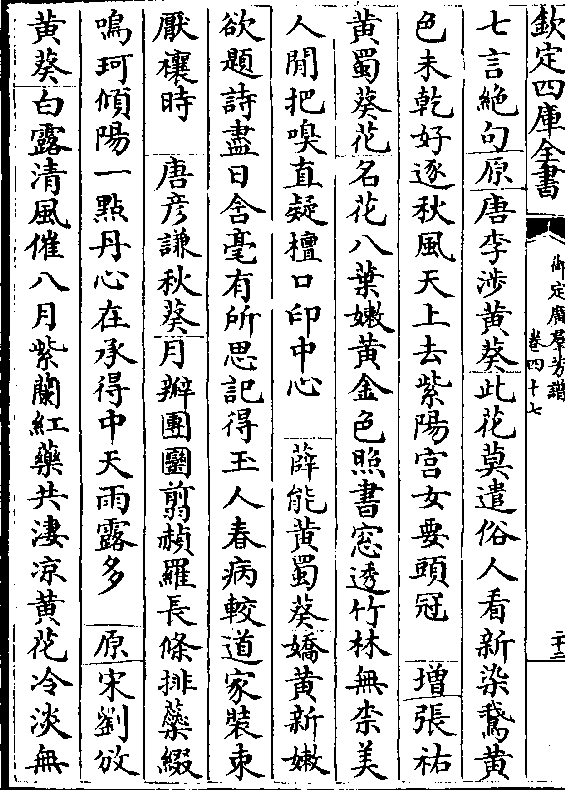 欽定四庫全書
御定廣羣芳譜
卷四十七
二十三
七言絶句原唐李涉黄葵此花莫遣俗人看新染鵞黄
色未乾好逐秋風天上去紫陽宫女要頭冠 増張祜
黄蜀葵花名花八葉嫩黄金色照書窓透竹林無柰美
人閒把嗅直疑檀口印中心 薛能黄蜀葵嬌黄新嫩
欲題詩盡日含毫有所思記得玉人春病較道家装束
厭禳時 唐彦謙秋葵月瓣團圞翦赬羅長條排蘂綴
鳴珂傾陽一點丹心在承得中天雨露多 原宋劉攽
黄葵白露清風催八月紫蘭紅藥共淒凉黄花冷淡無